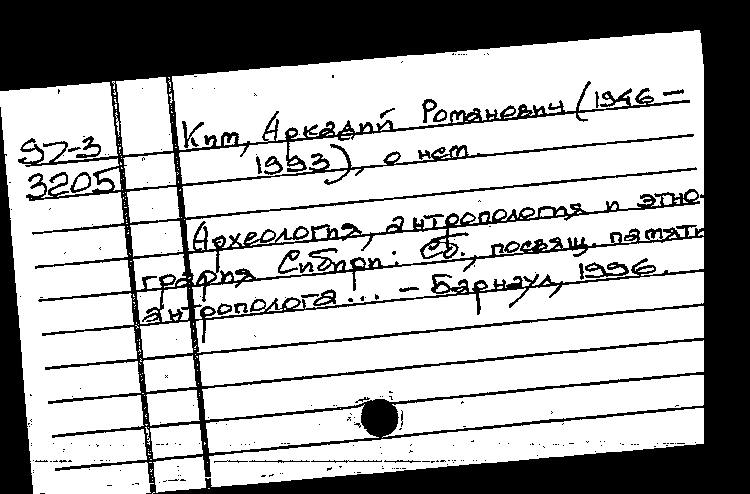 97-3
3205
Ким, Аркадий Романович (1946 –
1993), о нем.
Археология, антропология и этно-
графия Сибири: Сб., посвящ. памяти
антрополога... – Барнаул, 1996.